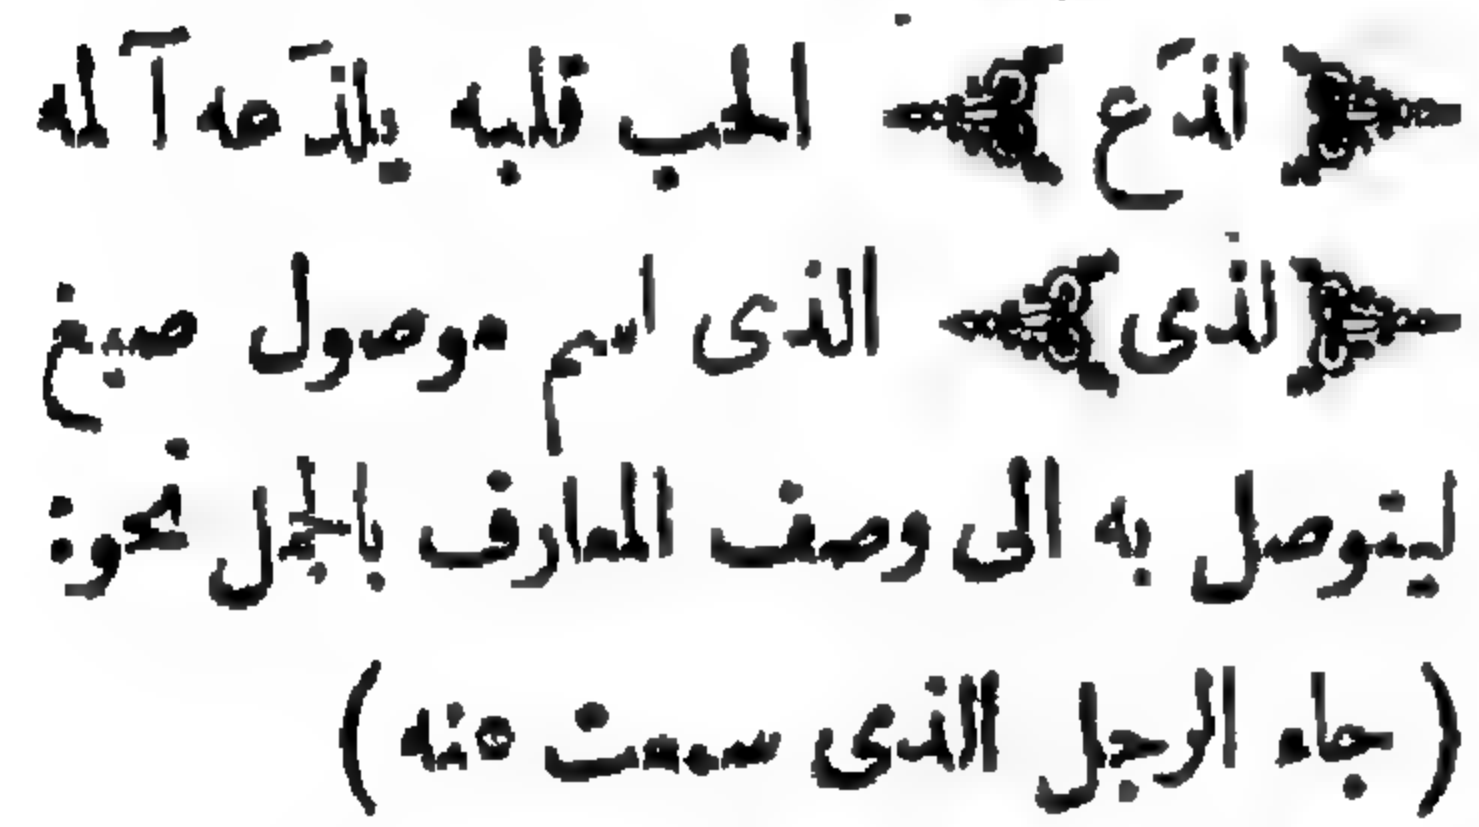 ﴿ لذَع ﴾ الحب قلبه يلذَعه آلمه
﴿ لذى ﴾ الذى اسم موصول صيغ
ليتوصل به الى وصف المعارف بالجمل نحو:
( جاء الرجل الذى سمعت منه )